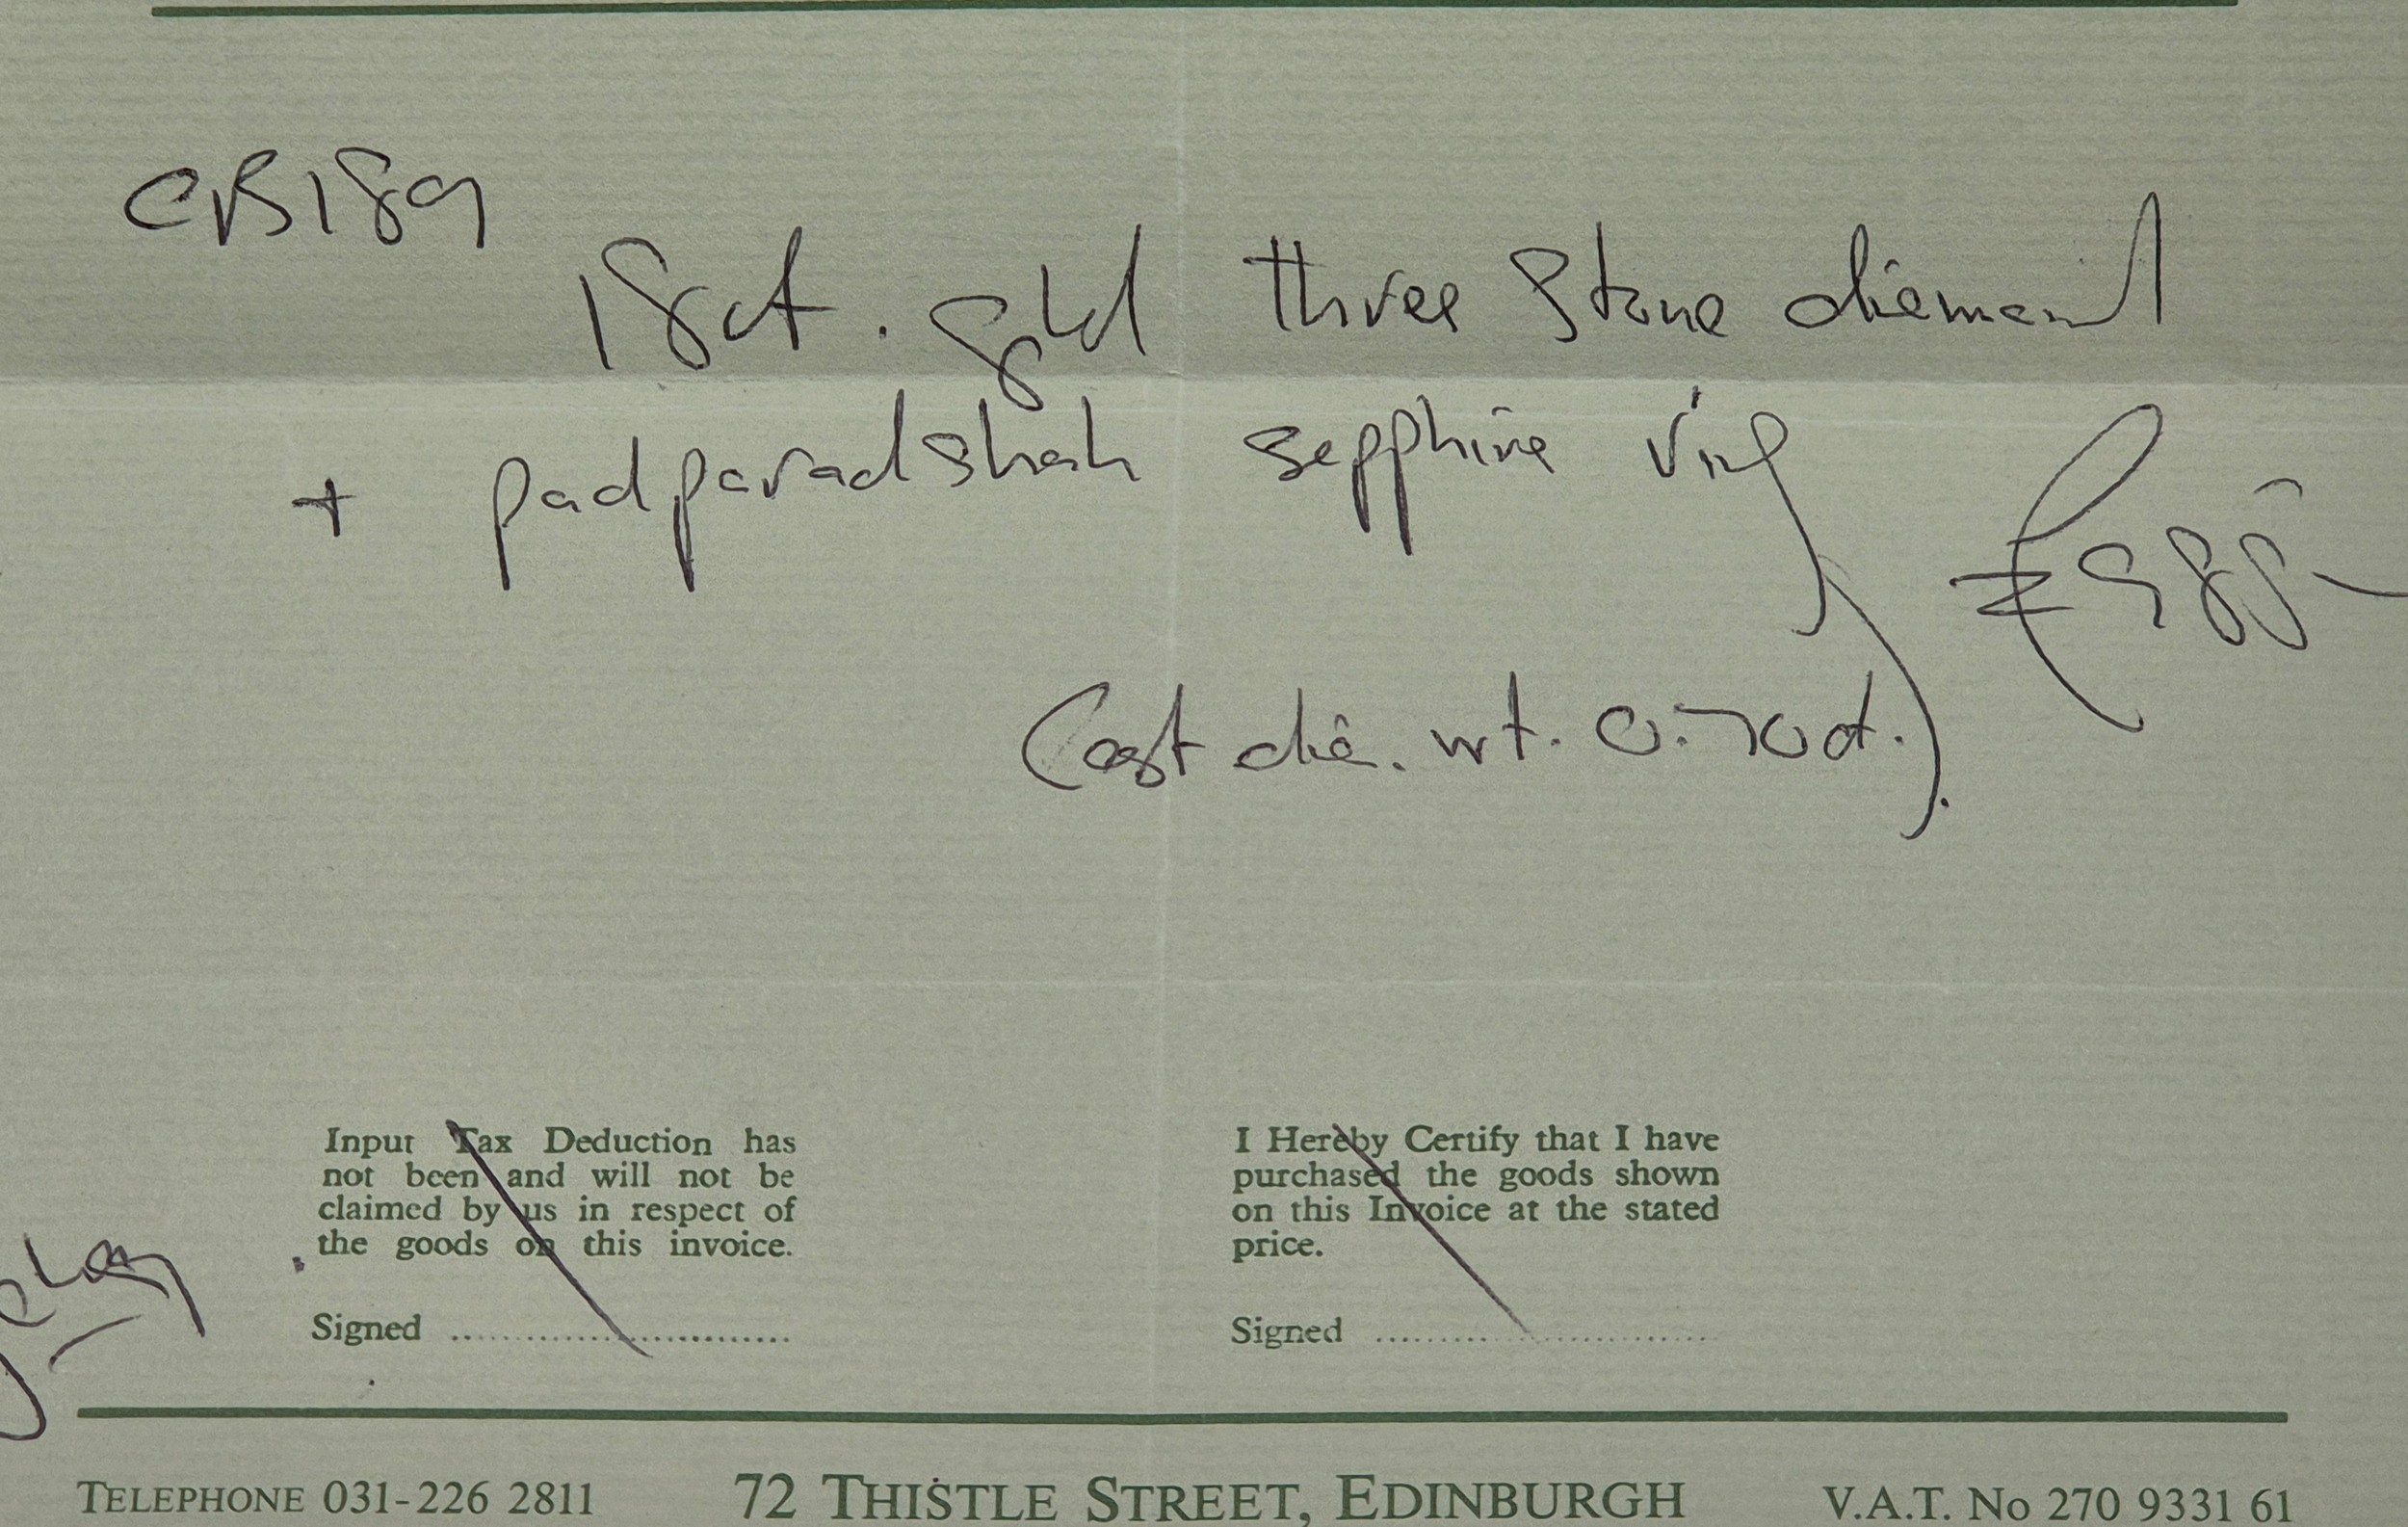 CB189
18ct. gold three stone diamond
+ padparadshah sapphire ring
£985-
(est dia. wt. 0.70ct.).
Input Tax Deduction has
not been and will not be
claimed by us in respect of
the goods on this invoice.
Signed ..............................
I Hereby Certify that I have
purchased the goods shown
on this Invoice at the stated
price.
Signed ..............................
TELEPHONE 031-226 2811 72 THISTLE STREET, EDINBURGH V.A.T. No 270 9331 61